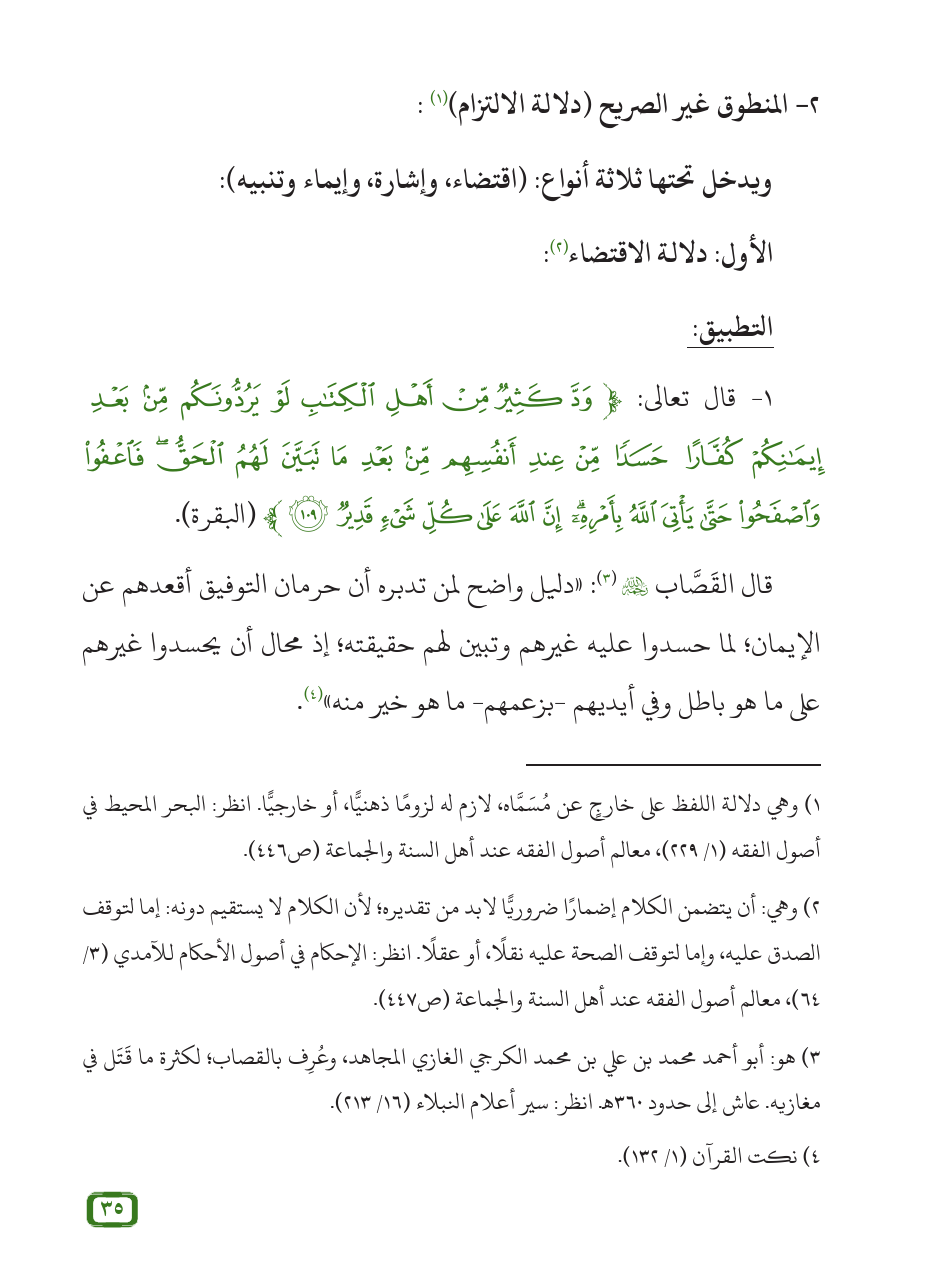 ٢- المنطوق غير الصريح (دلالة الالتزام)(١) :
ويدخل تحتها ثلاثة أنواع: (اقتضاء، وإشارة، وإيماء وتنبيه):
الأول: دلالة الاقتضاء(٢):
التطبيق:
١- قال تعالى: ﴿ وَدَّ كَثِيرٌ مِّنْ أَهْلِ ٱلْكِتَٰبِ لَوْ يَرُدُّونَكُم مِّنۢ بَعْدِ
إِيمَٰنِكُمْ كُفَّارًا حَسَدًا مِّنْ عِندِ أَنفُسِهِم مِّنۢ بَعْدِ مَا تَبَيَّنَ لَهُمُ ٱلْحَقُّ ۖ فَٱعْفُوا۟
وَٱصْفَحُوا۟ حَتَّىٰ يَأْتِىَ ٱللَّهُ بِأَمْرِهِۦٓ ۗ إِنَّ ٱللَّهَ عَلَىٰ كُلِّ شَىْءٍ قَدِيرٌ ١٠٩ ﴾ (البقرة).
قال القَصَّاب رحمه الله(٣): «دليل واضح لمن تدبره أن حرمان التوفيق أقعدهم عن
الإيمان؛ لما حسدوا عليه غيرهم وتبين لهم حقيقته؛ إذ محال أن يحسدوا غيرهم
على ما هو باطل وفي أيديهم -بزعمهم- ما هو خير منه»(٤).
١) وهي دلالة اللفظ على خارجٍ عن مُسَمَّاه، لازم له لزومًا ذهنيًّا، أو خارجيًّا. انظر: البحر المحيط في
أصول الفقه (١/ ٢٢٩)، معالم أصول الفقه عند أهل السنة والجماعة (ص٤٤٦).
٢) وهي: أن يتضمن الكلام إضمارًا ضروريًّا لابد من تقديره؛ لأن الكلام لا يستقيم دونه: إما لتوقف
الصدق عليه، وإما لتوقف الصحة عليه نقلًا، أو عقلًا. انظر: الإحكام في أصول الأحكام للآمدي (٣/
٦٤)، معالم أصول الفقه عند أهل السنة والجماعة (ص٤٤٧).
٣) هو: أبو أحمد محمد بن علي بن محمد الكرجي الغازي المجاهد، وعُرِف بالقصاب؛ لكثرة ما قَتَل في
مغازيه. عاش إلى حدود ٣٦٠هـ. انظر: سير أعلام النبلاء (١٦/ ٢١٣).
٤) نكت القرآن (١/ ١٣٢).
٣٥